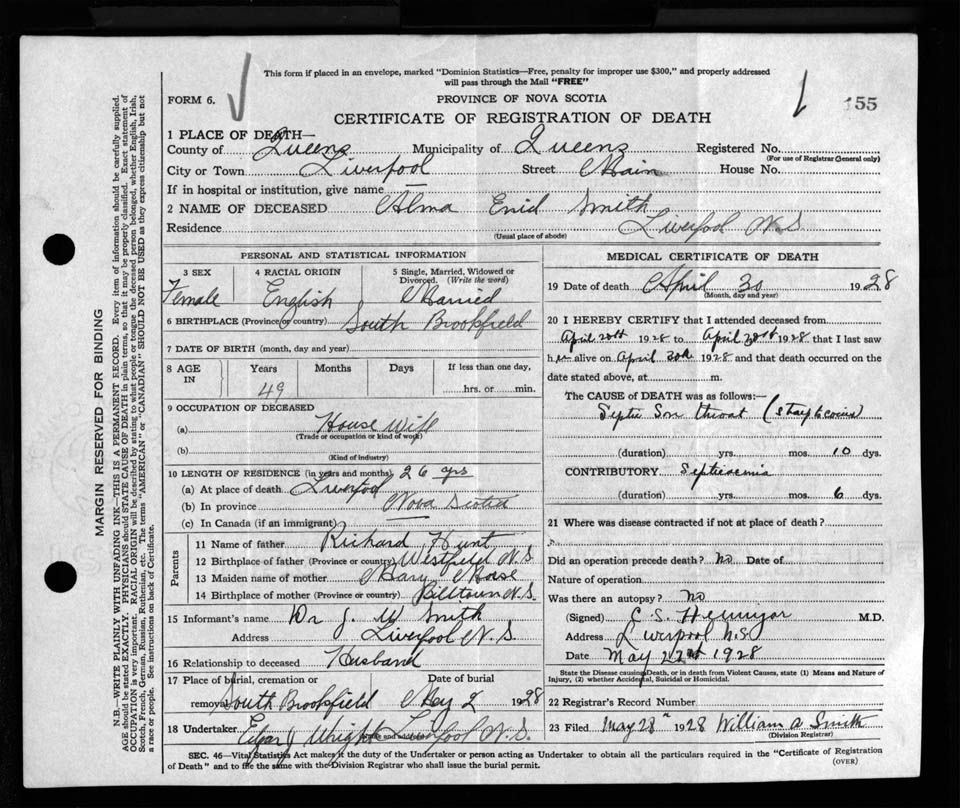 This form if placed in an envelope, marked "Dominion Statistics—Free, penalty for improper use $300," and properly addressed
will pass through the Mail "FREE"
FORM 6.
PROVINCE OF NOVA SCOTIA
155
CERTIFICATE OF REGISTRATION OF DEATH
1 PLACE OF DEATH—
County of Queens Municipality of Queens Registered No.
(For use of Registrar General only)
City or Town Liverpool Street Main House No.
If in hospital or institution, give name —
2 NAME OF DECEASED Alma Enid Smith
Residence Liverpool N.S
(Usual place of abode)
PERSONAL AND STATISTICAL INFORMATION
3 SEX 4 RACIAL ORIGIN 5 Single, Married, Widowed or
Divorced. (Write the word)
Female English Married
6 BIRTHPLACE (Province or country) South Brookfield
7 DATE OF BIRTH (month, day and year)
8 AGE IN Years Months Days If less than one day,
49 hrs. or min.
9 OCCUPATION OF DECEASED
(a) House Wife
(Trade or occupation or kind of work)
(b)
(Kind of industry)
10 LENGTH OF RESIDENCE (in years and months) 26 yrs
(a) At place of death Liverpool
(b) In province Nova Scotia
(c) In Canada (if an immigrant) —
Parents
11 Name of father Richard Hunt
12 Birthplace of father (Province or country) Westfield N.S
13 Maiden name of mother Mary
14 Birthplace of mother (Province or country) Billtown N.S.
15 Informant's name Dr J. W Smith
Address Liverpool N.S.
16 Relationship to deceased Husband
17 Place of burial, cremation or Date of burial
removal South Brookfield May 2 1928
18 Undertaker Edgar J Wright L'pool N.S.
(Name and address)
MEDICAL CERTIFICATE OF DEATH
19 Date of death April 30 1928
(Month, day and year)
20 I HEREBY CERTIFY that I attended deceased from
April 20th 1928 to April 30th 1928 that I last saw
her alive on April 30th 1928 and that death occurred on the
date stated above, at m.
The CAUSE of DEATH was as follows:—
Septic Sore throat
(duration) yrs. mos. 10 dys.
CONTRIBUTORY Septicaemia
(duration) yrs. mos. 6 dys.
21 Where was disease contracted if not at place of death?
Did an operation precede death? no Date of
Nature of operation
Was there an autopsy? no
(Signed) C. S. Hennigar M.D.
Address Liverpool N.S.
Date May 1928
State the Disease causing Death, or in death from Violent Causes, state (1) Means and Nature of
Injury, (2) whether Accidental, Suicidal or Homicidal.
22 Registrar's Record Number
23 Filed May 28th 1928 William A Smith
(Division Registrar)
SEC. 46—Vital Statistics Act makes it the duty of the Undertaker or person acting as Undertaker to obtain all the particulars required in the "Certificate of Registration
of Death" and to file the same with the Division Registrar who shall issue the burial permit.
(OVER)
MARGIN RESERVED FOR BINDING
N.B.—WRITE PLAINLY WITH UNFADING INK—THIS IS A PERMANENT RECORD. Every item of information should be carefully supplied.
AGE should be stated EXACTLY. PHYSICIANS should STATE CAUSE OF DEATH in plain terms, so that it may be properly classified. Exact statement of
OCCUPATION is very important. RACIAL ORIGIN will be described by stating to what people or tongue the deceased person belonged, whether English, Irish,
Scotch, French, German, Russian, Ruthenian, etc. The terms "AMERICAN" or "CANADIAN" SHOULD NOT BE USED as they express citizenship but not
a race or people. See instructions on back of Certificate.